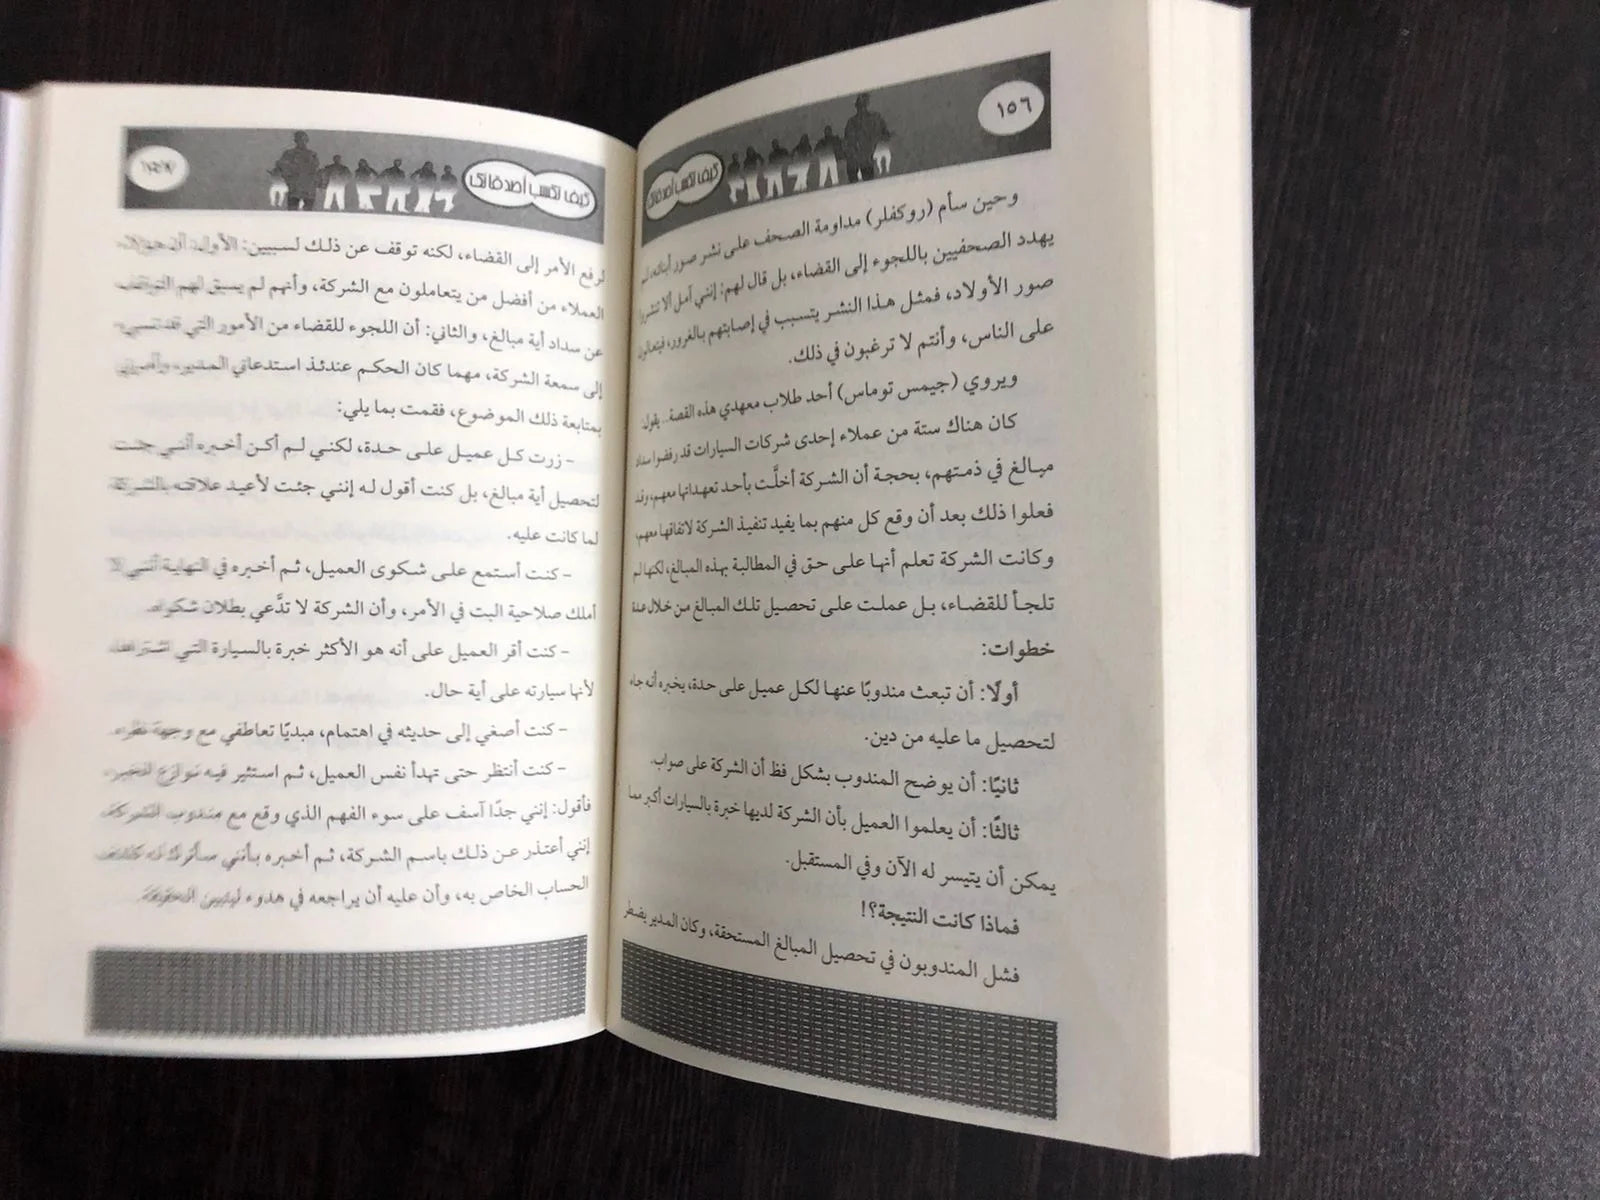 ١٥٦
كيف تكسب أصدقائك
وحين سأم (روكفلر) مداومة الصحف على نشر صور أبنائه، لم
يهدد الصحفيين باللجوء إلى القضاء، بل قال لهم: إنني آمل ألا تنشروا
صور الأولاد، فمثل هذا النشر يتسبب في إصابتهم بالغرور، فيتعالون
على الناس، وأنتم لا ترغبون في ذلك.
ويروي (جيمس توماس) أحد طلاب معهدي هذه القصة.. يقول:
كان هناك ستة من عملاء إحدى شركات السيارات قد رفضوا سداد
مبالغ في ذمتهم، بحجة أن الشركة أخلَّت بأحد تعهداتها معهم، وقد
فعلوا ذلك بعد أن وقع كل منهم بما يفيد تنفيذ الشركة لاتفاقها معهم،
وكانت الشركة تعلم أنها على حق في المطالبة بهذه المبالغ، لكنها لم
تلجأ للقضاء، بل عملت على تحصيل تلك المبالغ من خلال عدة
خطوات:
أولًا: أن تبعث مندوبًا عنها لكل عميل على حدة، يخبره أنه جاء
لتحصيل ما عليه من دين.
ثانيًا: أن يوضح المندوب بشكل فظ أن الشركة على صواب.
ثالثًا: أن يعلموا العميل بأن الشركة لديها خبرة بالسيارات أكبر مما
يمكن أن يتيسر له الآن وفي المستقبل.
فماذا كانت النتيجة؟!
فشل المندوبون في تحصيل المبالغ المستحقة، وكان المدير يضطر
كيف تكسب أصدقائك
لرفع الأمر إلى القضاء، لكنه توقف عن ذلك لسببين: الأول: أن هؤلاء
العملاء من أفضل من يتعاملون مع الشركة، وأنهم لم يسبق لهم التوقف
عن سداد أية مبالغ، والثاني: أن اللجوء للقضاء من الأمور التي قد تسيء
إلى سمعة الشركة، مهما كان الحكم عندئذ استدعاني المدير، وأمرني
بمتابعة ذلك الموضوع، فقمت بما يلي:
- زرت كل عميل على حدة، لكني لم أكن أخبره أنني جئت
لتحصيل أية مبالغ، بل كنت أقول له إنني جئت لأعيد علاقته بالشركة
لما كانت عليه.
- كنت أستمع على شكوى العميل، ثم أخبره في النهاية أنني لا
أملك صلاحية البت في الأمر، وأن الشركة لا تدَّعي بطلان شكواه.
- كنت أقر العميل على أنه هو الأكثر خبرة بالسيارة التي اشتراها،
لأنها سيارته على أية حال.
- كنت أصغي إلى حديثه في اهتمام، مبديًا تعاطفي مع وجهة نظره.
- كنت أنتظر حتى تهدأ نفس العميل، ثم استثير فيه نوازع الخير،
فأقول: إنني جدًا آسف على سوء الفهم الذي وقع مع مندوب الشركة،
إنني أعتذر عن ذلك باسم الشركة، ثم أخبره بأنني سأترك له كشف
الحساب الخاص به، وأن عليه أن يراجعه في هدوء ليتبين الحقيقة.